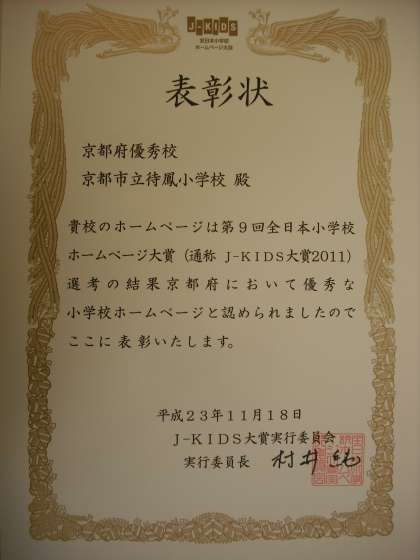 J-KIDS
全日本小学校
ホームページ大賞
表彰状
京都府優秀校
京都市立待鳳小学校 殿
貴校のホームページは第9回全日本小学校
ホームページ大賞（通称 J-KIDS大賞2011）
選考の結果京都府において優秀な
小学校ホームページと認められましたので
ここに表彰いたします。
平成23年11月18日
J-KIDS大賞実行委員会
実行委員長 村井 純